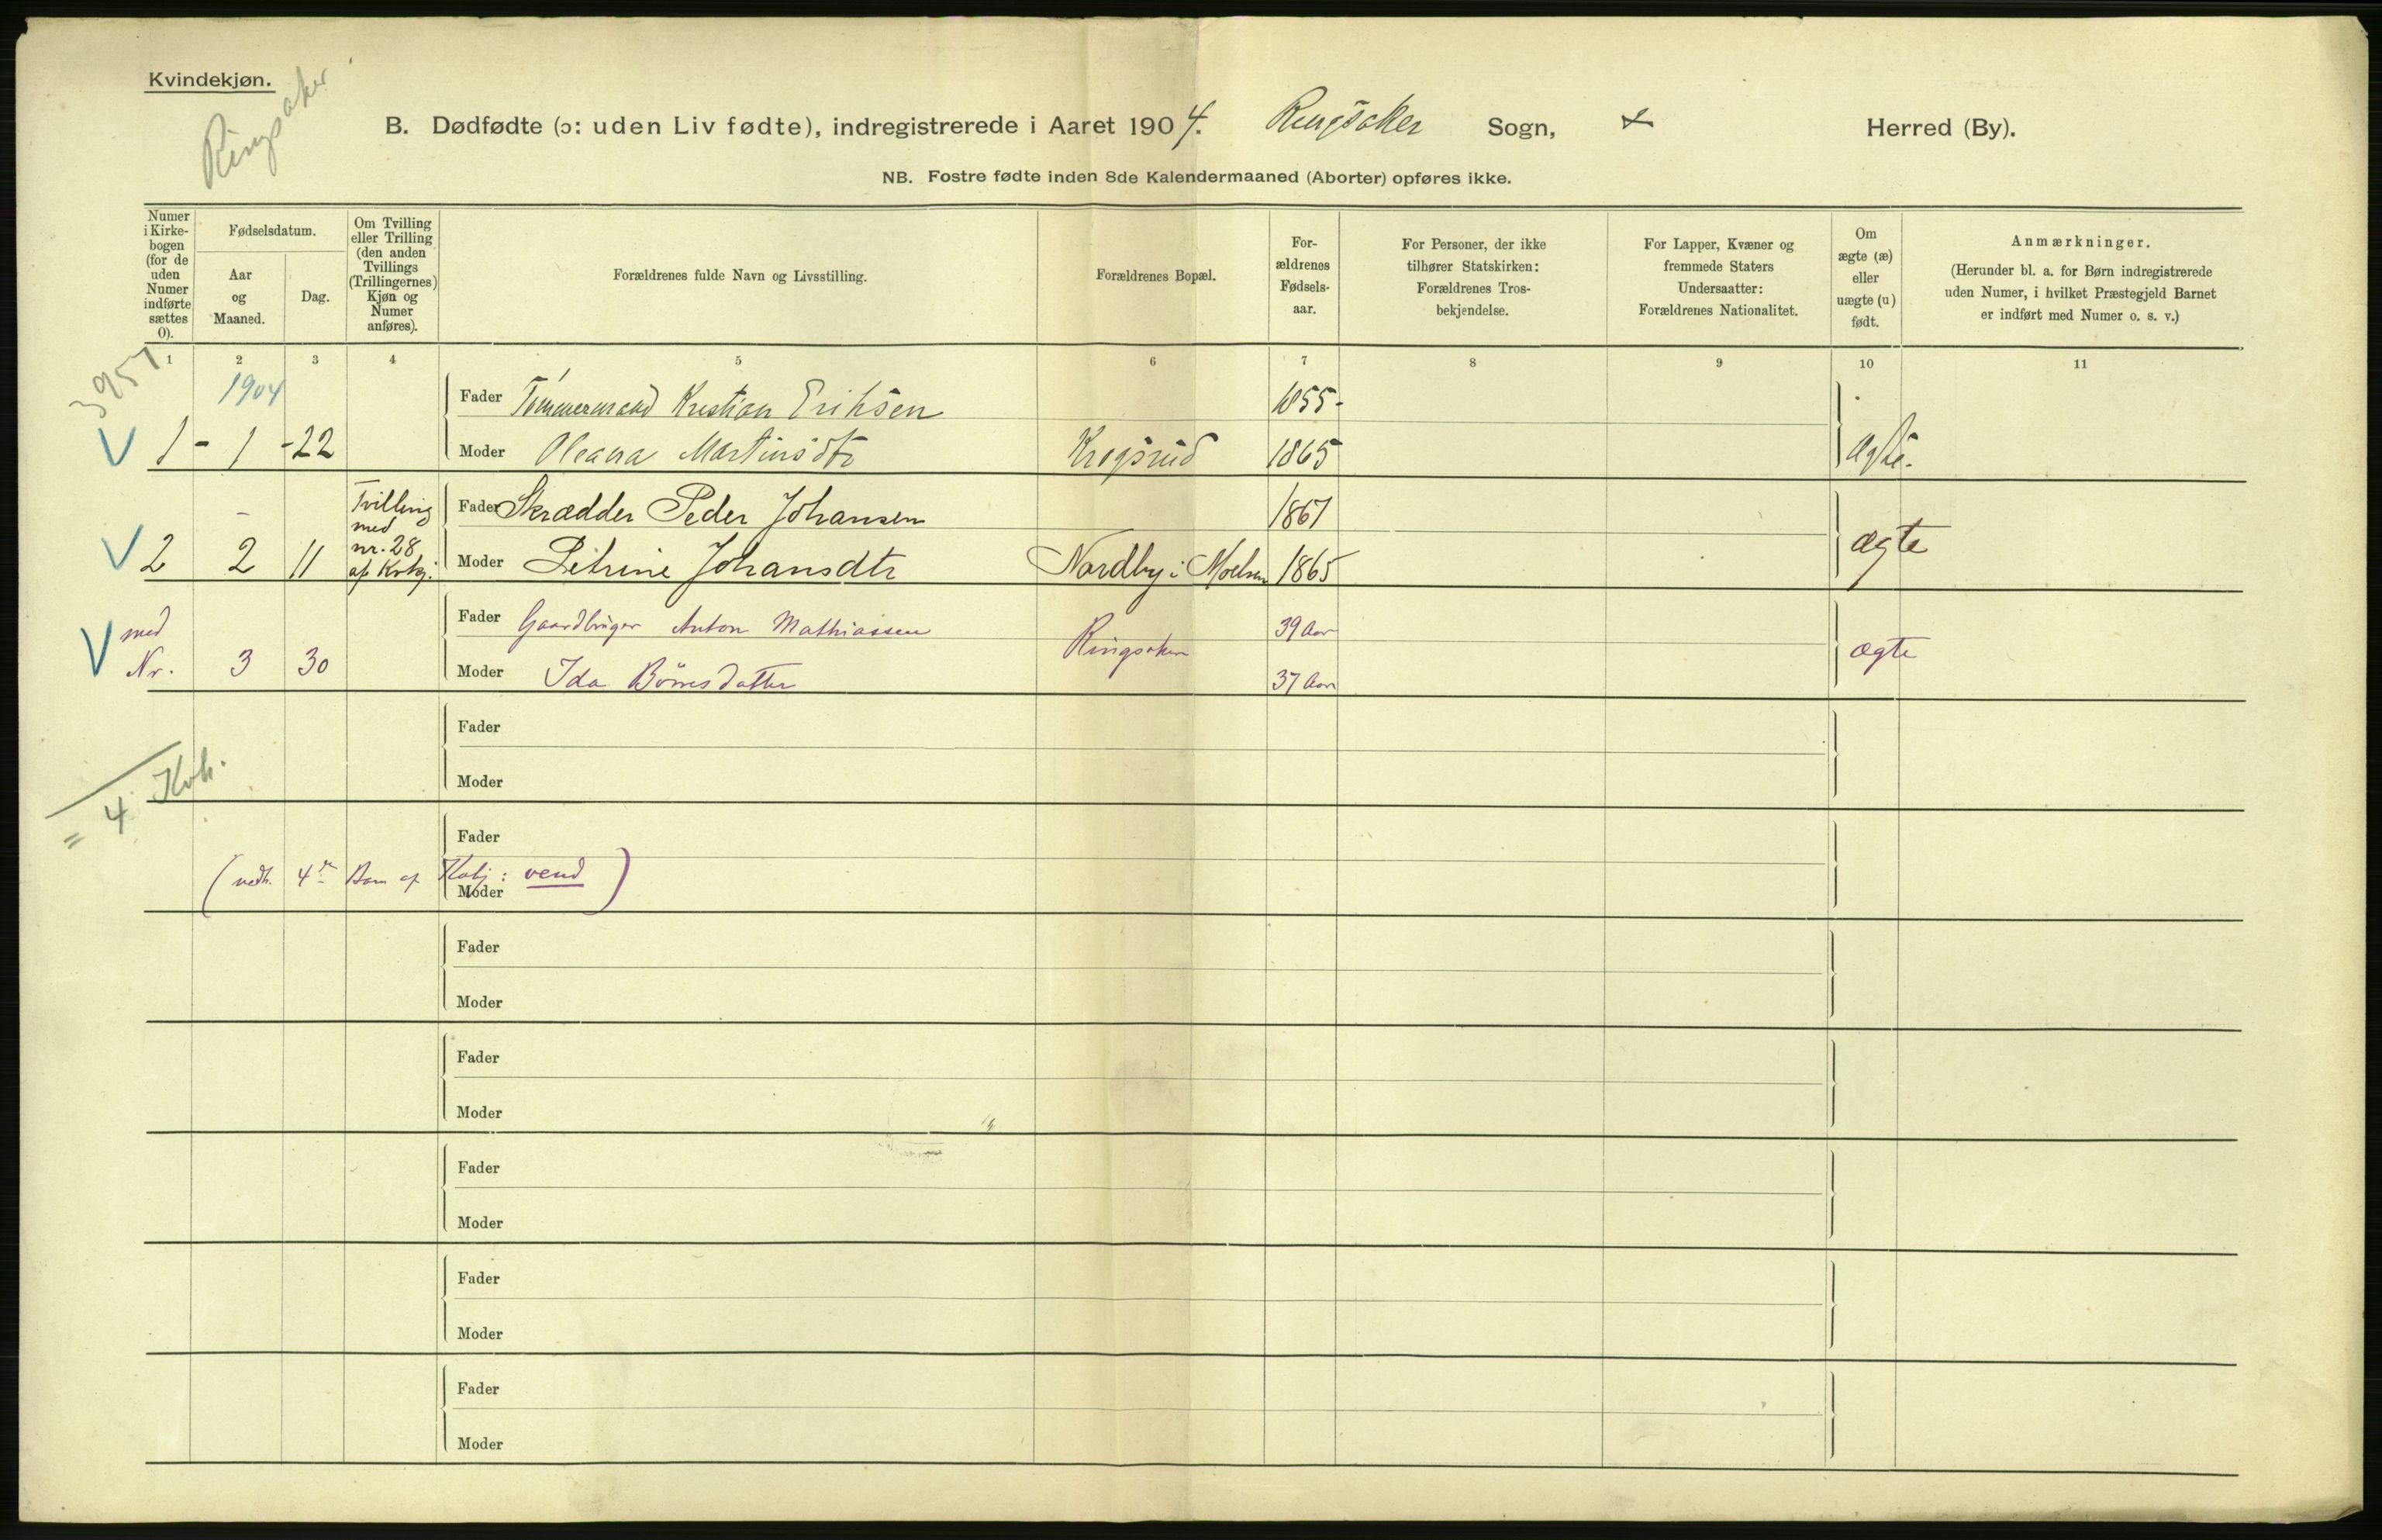 Kvindekjøn.
Ringsaker
B. Dødfødte (ɔ: uden Liv fødte), indregistrerede i Aaret 1904. Ringsaker Sogn, Herred (By).
NB. Fostre fødte inden 8de Kalendermaaned (Aborter) opføres ikke.
Numer
i Kirke-
bogen
(for de
uden
Numer
indførte
sættes
0).
Fødselsdatum.
Aar
og
Maaned.
Dag.
Om Tvilling
eller Trilling
(den anden
Tvillings
(Trillingernes)
Kjøn og
Numer
anføres).
Forældrenes fulde Navn og Livsstilling.
Forældrenes Bopæl.
For-
ældrenes
Fødsels-
aar.
For Personer, der ikke
tilhører Statskirken:
Forældrenes Tros-
bekjendelse.
For Lapper, Kvæner og
fremmede Staters
Undersaatter:
Forældrenes Nationalitet.
Om
ægte (æ)
eller
uægte (u)
født.
Anmærkninger.
(Herunder bl. a. for Børn indregistrerede
uden Numer, i hvilket Præstegjeld Barnet
er indført med Numer o. s. v.)
1 2 3 4 5 6 7 8 9 10 11
3957
1904
Fader Tømmermand Kristian Eriksen 1855-
1 - 1 - 22 Moder Oleana Martinsdtr Krogsrud 1865 Ægte.
Tvilling
med
nr. 28
af Kvkj.
Fader Skrædder Peder Johansen 1867
2 2 11 Moder Petrine Johansdtr Nordby i Moelven 1865 ægte
med
Nr. 3 30
Fader Gaardbruger Anton Mathiassen Ringsaker 39 Aar ægte
Moder Ida Börresdatter 37 Aar
Fader
Moder
= 4 Kvk.
Fader
(vedk. 4de Barn af Kvkj: vend)
Moder
Fader
Moder
Fader
Moder
Fader
Moder
Fader
Moder
Fader
Moder